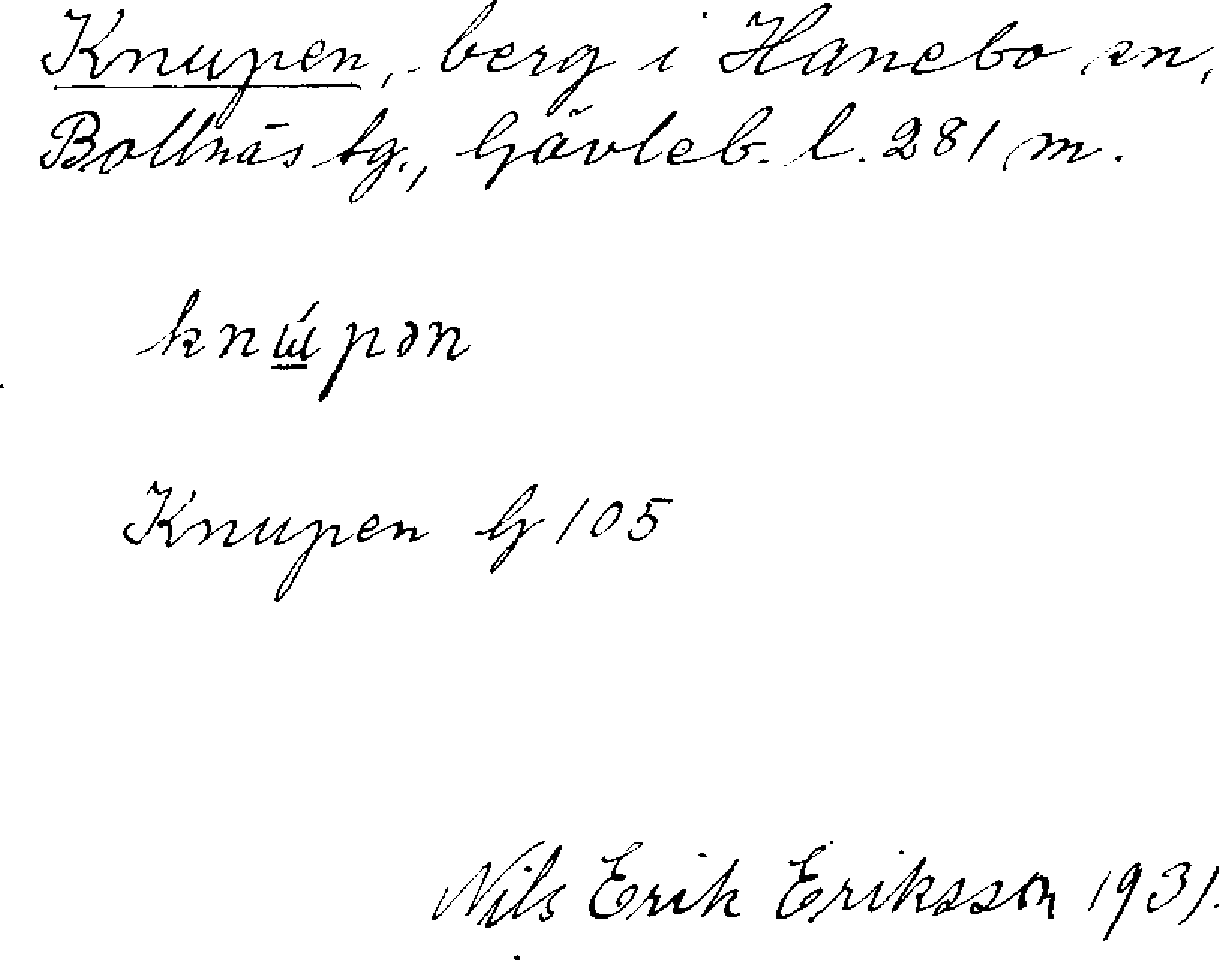 Knupen, berg i Hanebo sn,
Bollnäs tg., Gävleb. l. 281 m.
knɯ́pən
Knupen G 105
Nils Erik Eriksson 1931.